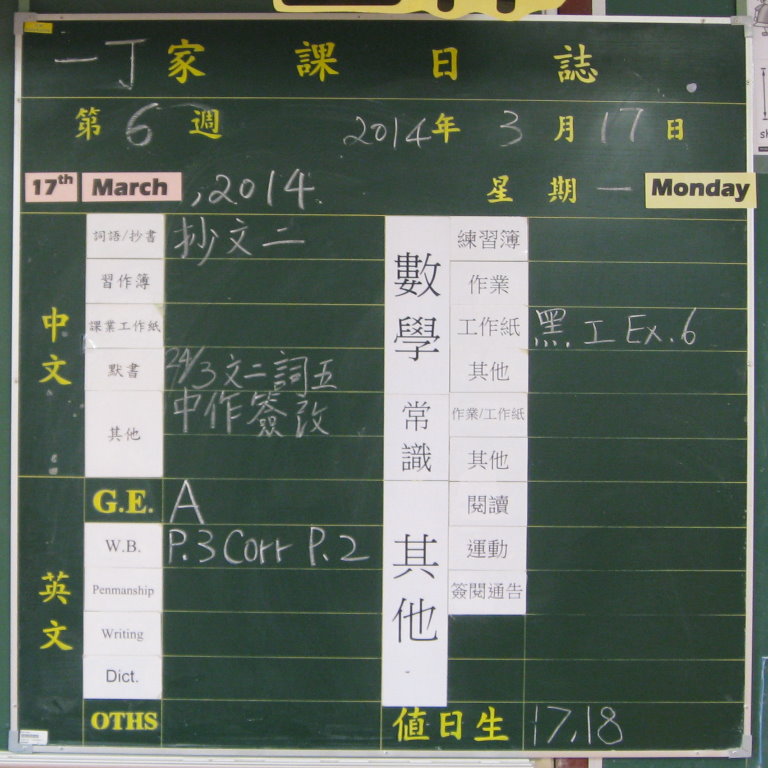 一丁家課日誌
第6週 2014年3月17日
17th March ,2014. 星期一 Monday
中文
詞語/抄書 抄文二
習作簿
課業工作紙
默書 24/3 文二詞五
其他 中作簽改
英文
G.E. A
W.B. P.3 Corr P.2
Penmanship
Writing
Dict.
OTHS
數學
練習簿
作業
工作紙 黑工 Ex.6
其他
常識
作業/工作紙
其他
其他
閱讀
運動
簽閱通告
值日生 17,18